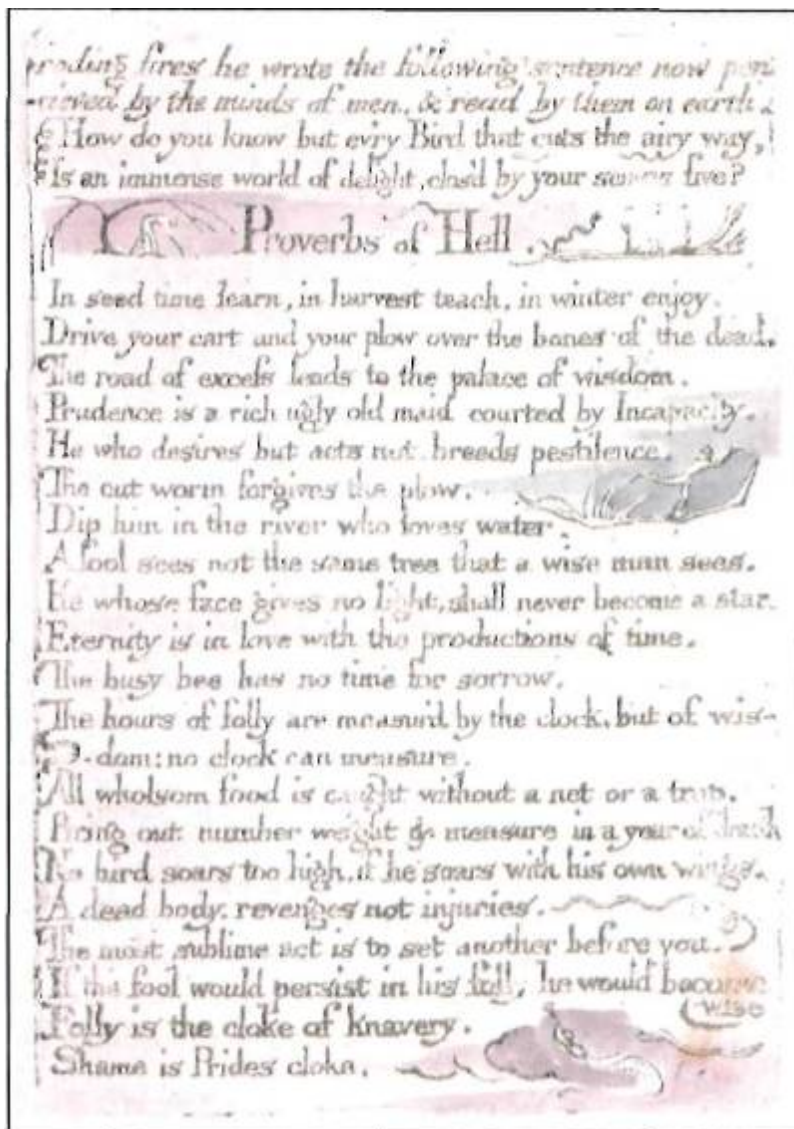 roding fires he wrote the following sentence now per
cieved by the minds of men, & read by them on earth.
How do you know but ev'ry Bird that cuts the airy way,
Is an immense world of delight, clos'd by your senses five?
Proverbs of Hell.
In seed time learn, in harvest teach, in winter enjoy.
Drive your cart and your plow over the bones of the dead.
The road of excess leads to the palace of wisdom.
Prudence is a rich ugly old maid courted by Incapacity.
He who desires but acts not, breeds pestilence.
The cut worm forgives the plow.
Dip him in the river who loves water.
A fool sees not the same tree that a wise man sees.
He whose face gives no light, shall never become a star.
Eternity is in love with the productions of time.
The busy bee has no time for sorrow.
The hours of folly are measur'd by the clock, but of wis-
-dom: no clock can measure.
All wholsom food is caught without a net or a trap.
Bring out number weight & measure in a year of dearth
No bird soars too high, if he soars with his own wings.
A dead body, revenges not injuries.
The most sublime act is to set another before you.
If the fool would persist in his folly he would become
wise
Folly is the cloke of knavery.
Shame is Prides cloke.